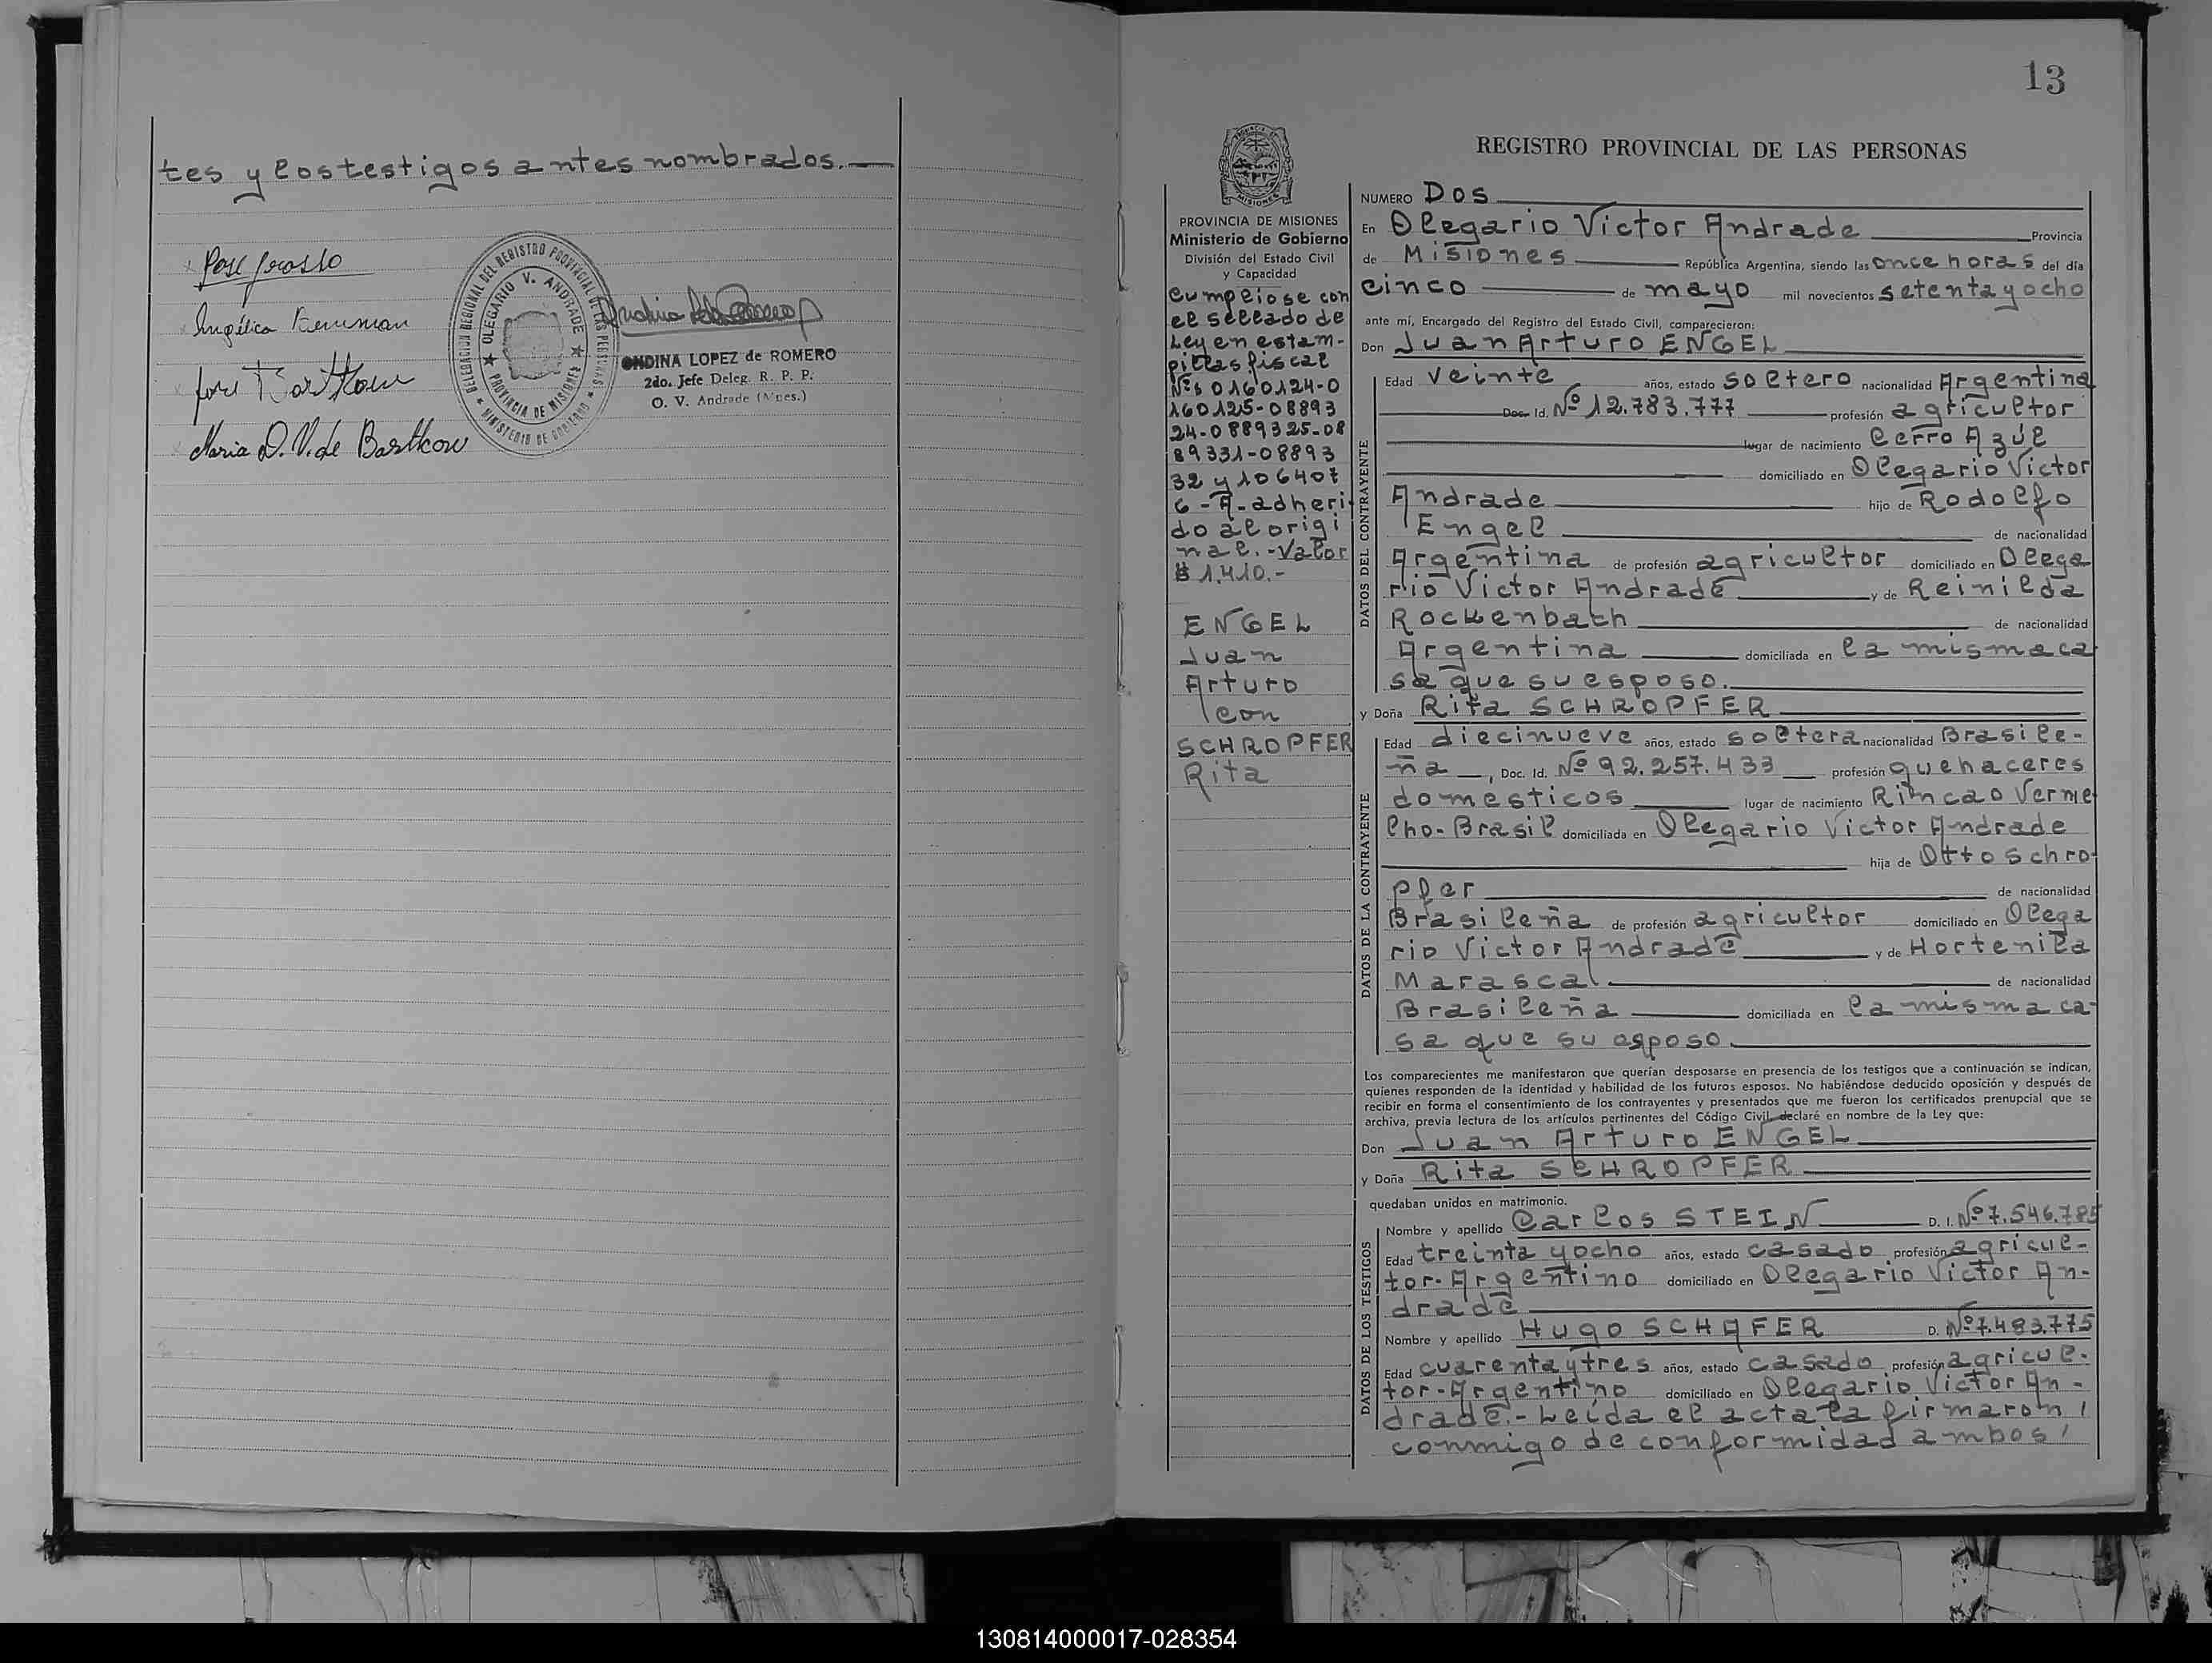 tes y los testigos antes nombrados.—
José Grosso
Angélica
José Bartkow
Maria D. V. de Bartkow
DELEGACION REGIONAL DEL REGISTRO PROVINCIAL DE LAS PERSONAS
★ MINISTERIO DE GOBIERNO ★
OLEGARIO V. ANDRADE
★ PROVINCIA DE MISIONES ★
ONDINA LOPEZ de ROMERO
2do. Jefe Deleg. R. P. P.
O. V. Andrade (Mnes.)
13
REGISTRO PROVINCIAL DE LAS PERSONAS
MISIONES
PROVINCIA DE MISIONES
Ministerio de Gobierno
División del Estado Civil
y Capacidad
Cumpliose con
el sellado de
Ley en estam-
pillas fiscal
Nºs 0160124-0
160125-08893
24-0889325-08
89331-08893
32 y 106407
6-A-adheri-
do al origi
nal.-Valor
$ 1.410.-
ENGEL
Juan
Arturo
con
SCHROPFER
Rita
NUMERO Dos
En Olegario Victor Andrade Provincia
de Misiones República Argentina, siendo las once horas del día
cinco de mayo mil novecientos setenta y ocho
ante mí, Encargado del Registro del Estado Civil, comparecieron:
Don Juan Arturo ENGEL
DATOS DEL CONTRAYENTE
Edad veinte años, estado soltero nacionalidad Argentina
Doc. Id. Nº 12.783.777 profesión agricultor
lugar de nacimiento Cerro Azúl
domiciliado en Olegario Victor
Andrade hijo de Rodolfo
Engel de nacionalidad
Argentina de profesión agricultor domiciliado en Olega
rio Victor Andrade y de Reinilda
Rockenbach de nacionalidad
Argentina domiciliada en la misma ca
sa que su esposo.
y Doña Rita SCHROPFER
DATOS DE LA CONTRAYENTE
Edad diecinueve años, estado soltera nacionalidad Brasile-
ña, Doc. Id. Nº 92.257.433 profesión quehaceres
domesticos lugar de nacimiento Rincao Verme
lho-Brasil domiciliada en Olegario Victor Andrade
hija de Otto Schro
pfer de nacionalidad
Brasileña de profesión agricultor domiciliado en Olega
rio Victor Andrade y de Hortenila
Marasca de nacionalidad
Brasileña domiciliada en la misma ca-
sa que su esposo.
Los comparecientes me manifestaron que querían desposarse en presencia de los testigos que a continuación se indican,
quienes responden de la identidad y habilidad de los futuros esposos. No habiéndose deducido oposición y después de
recibir en forma el consentimiento de los contrayentes y presentados que me fueron los certificados prenupcial que se
archiva, previa lectura de los artículos pertinentes del Código Civil, declaré en nombre de la Ley que:
Don Juan Arturo ENGEL
y Doña Rita SCHROPFER
quedaban unidos en matrimonio.
DATOS DE LOS TESTIGOS
Nombre y apellido Carlos STEIN D. I. Nº 7.546.785
Edad treinta y ocho años, estado casado profesión agricul-
tor-Argentino domiciliado en Olegario Victor An-
drade
Nombre y apellido Hugo SCHAFER D. Nº 7.483.775
Edad cuarenta y tres años, estado casado profesión agricul-
tor-Argentino domiciliado en Olegario Victor An-
drade.-Leída el acta la firmaron
conmigo de conformidad ambos
130814000017-028354